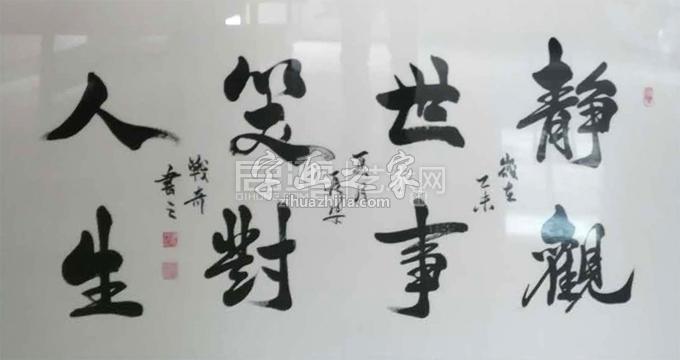 静觀
世事
笑對
人生
歲在
乙未
戰奇
書之
字画之家网
zihuazhijia.com